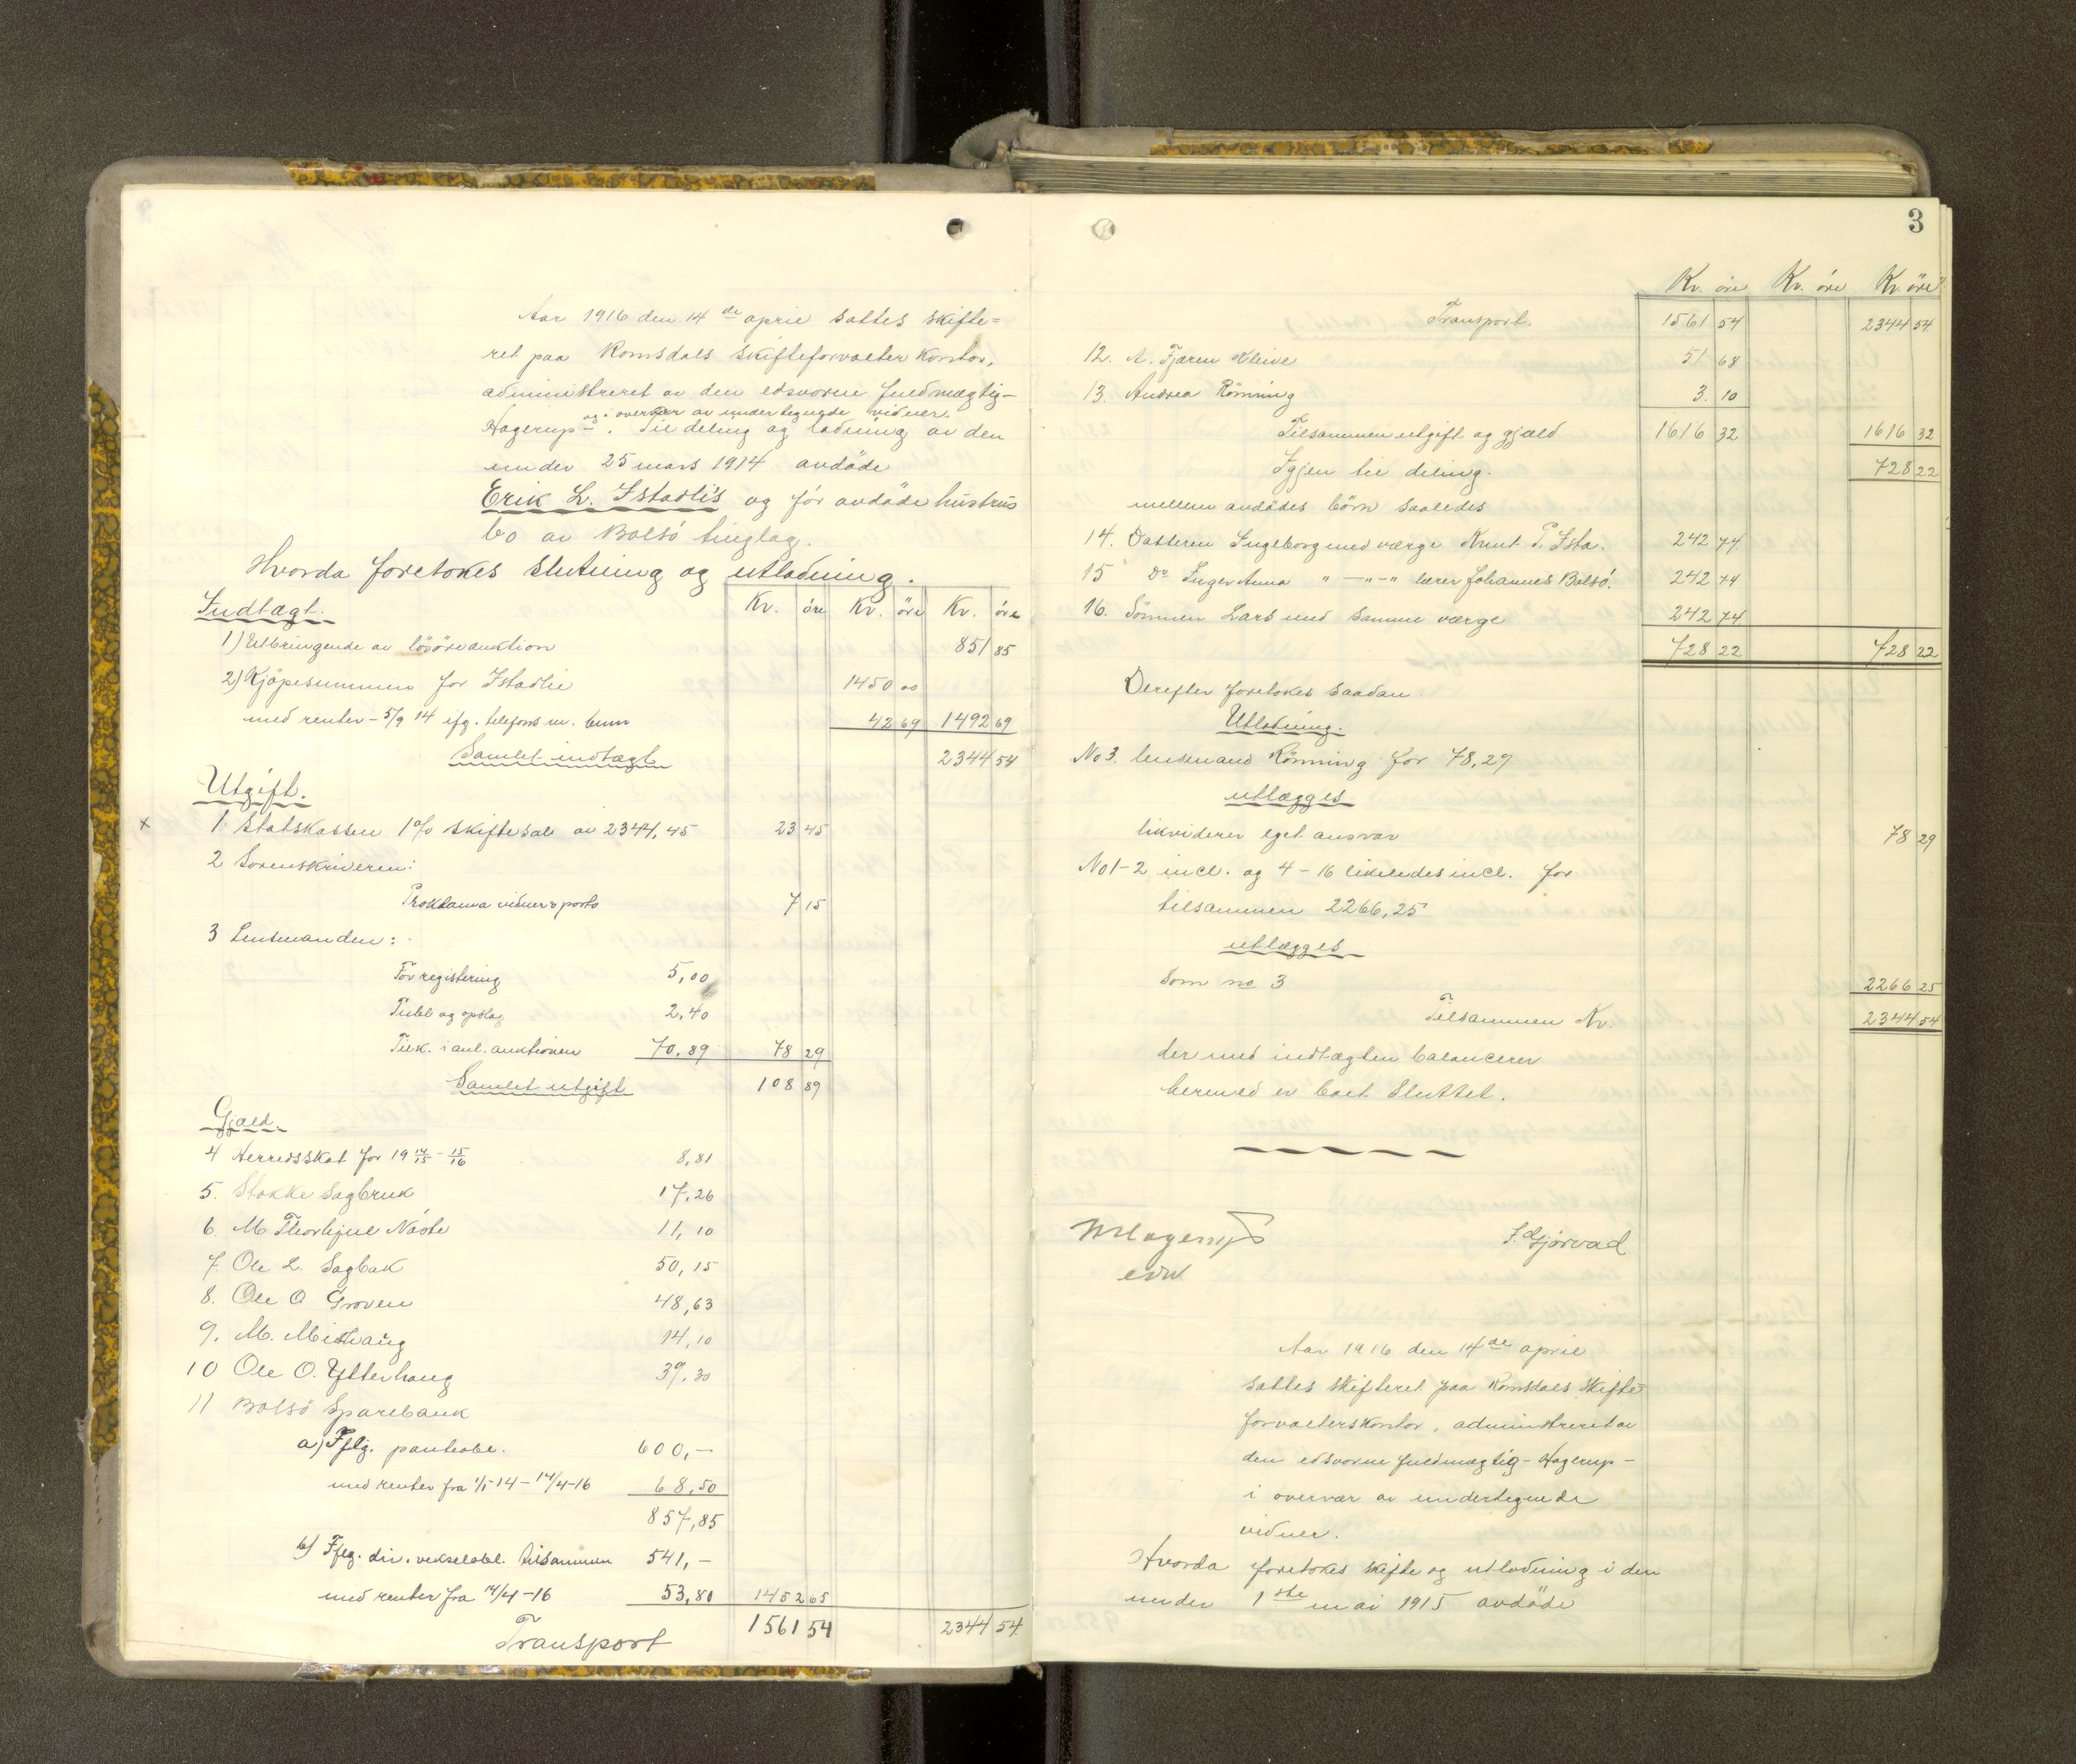 Aar 1916 den 14 de april sattes skifte=
ret paa Romsdals skifteforvalter kontor,
administreret av den edsvorne fuldmægtig -
og i overvær av undertegnede vidner.
Hagerup -. Til deling og lodning av den
under 25 mars 1914 avdöde
Erik L. Istadlis og för avdöde hustrus
bo av Bolsö tinglag.
Hvorda foretokes slutning og utlodning.
Kr. öre Kr. öre Kr. öre
Indtægt.
1) Utbringende av lösöreauktion 851 85
2) Kjöpesummen for Istadlie 1450 00
med renter - 5/9 14 ifg. telefons m. 42 69 1492 69
Samlet indtægt 2344 54
Utgift.
x 1. Statskassen 1% skiftesal av 2344,45 23 45
2 Sorenskriveren:
Proklama vidner & porto 7 15
3 Lensmanden:
For registering 5,00
Publ og opslag 2,40
Tilk. i anl. auktionen 70,89 78 29
Samlet utgift 108 89
Gjæld.
4 Herredsskat for 19 14/15 - 15/16 8,81
5. Stokke Sagbruk 17,26
6. M Thorhjul Nåste 11,10
7. Ole L. Sagbak 50,15
8. Ole O Groven 48,63
9. M. Mithaug 14,10
10 Ole O. Ytterhaug 39,30
11 Bolsö Sparebank
a) Iflg. panteobl. 600,-
med renter fra 1/5-14 - 14/4-16 68,50
857,85
b) Iflg. div. vekselobl. tilsammen 541,-
med renter fra 14/4-16 53,80 1452 65
Transport 1561 54 2344 54
3
Kr. öre Kr. öre Kr. öre
Transport. 1561 54 2344 54
12. A. Fjæren Kleive 51 68
13. Andrea Rönning 3. 10
Tilsammen utgift og gjæld 1616 32 1616 32
Igjen til deling. 728 22
mellem avdödes börn saaledes
14. Datteren Ingeborg med værge Knut P. Ista. 242 74
15 Do Inger Anna " - " - " lærer Johannes Bolsö. 242 74
16. Sönnen Lars med samme værge 242 74
728 22 728 22
Derefter foretokes saadan
Utlodning.
No 3. lensmand Rönning for 78,29
utlægges
likviderer eget ansvar 78 29
No 1-2 incl. og 4-16 likeledes incl. for
tilsammen 2266,25
utlægges
som no 3 2266 25
Tilsammen Kr. 2344 54
der med indtægten balancerer
hermed er boet sluttet.
NHagerup
edv.
Gjörvad
Aar 1916 den 14 de april
sattes skifteret paa Romsdals skifte
forvalterskontor, administreret av
den edsvorne fuldmægtig - Hagerup -
i overvær av undertegnede
vidner.
Hvorda foretokes skifte og utlodning i den
under 1 ste mai 1915 avdöde